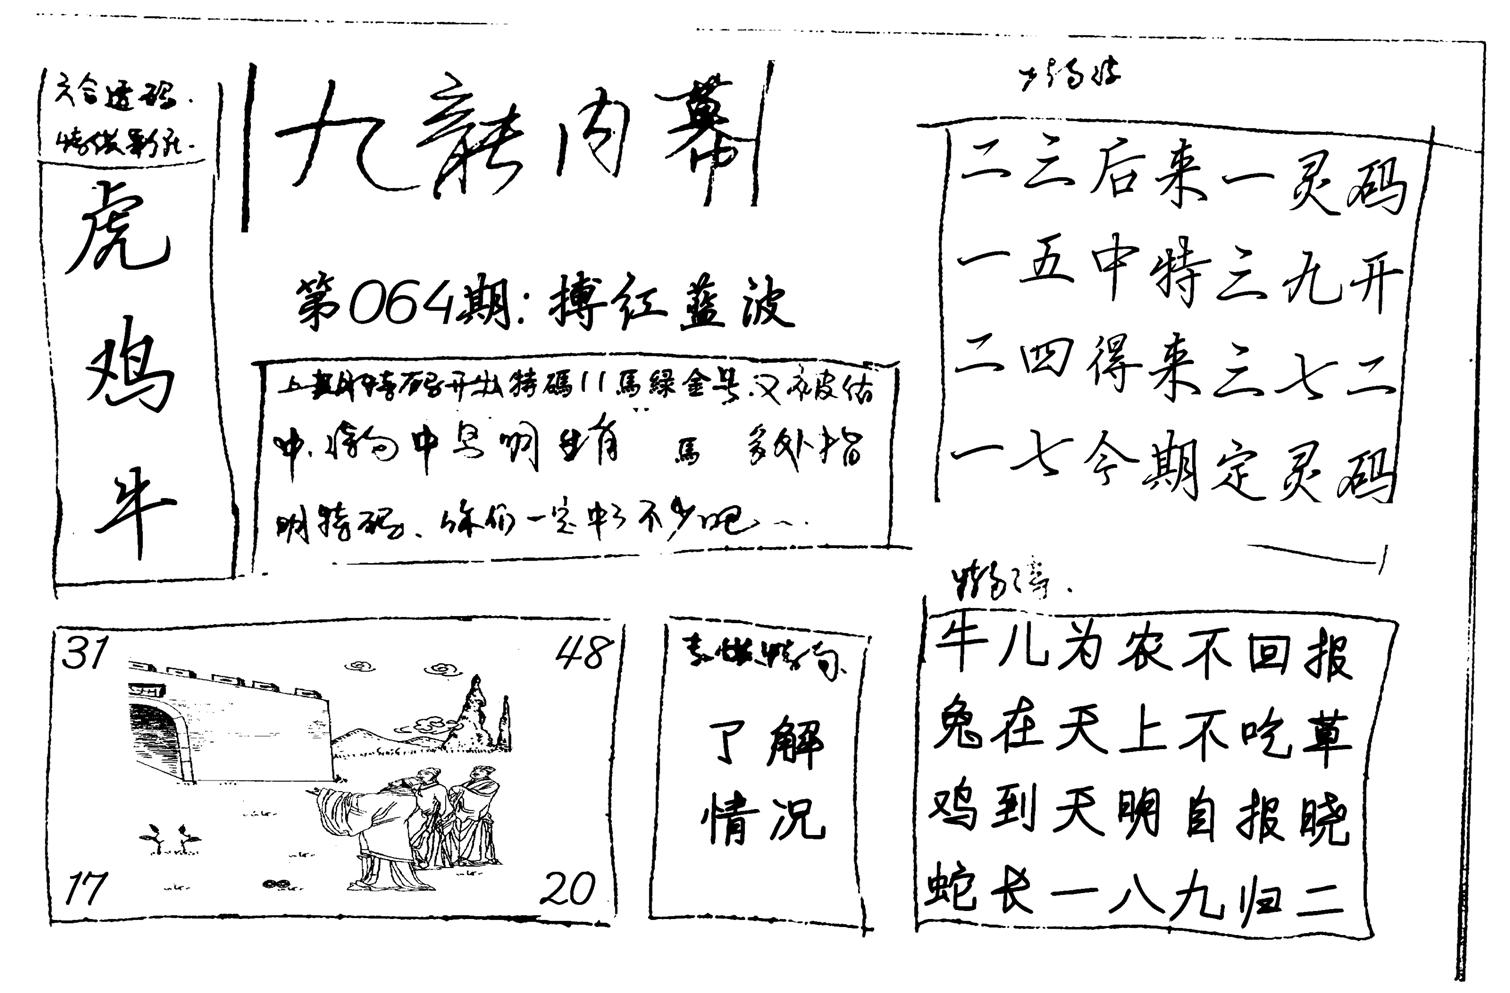 六合透码.
虎
鸡
牛
九龍内幕
第064期:搏红蓝波
上期特码开出特碼11馬緑金号.又被估
中.特句中号明生肖"馬 多外指
明特码、你们一定中了不少吧
二三后来一灵码
一五中特三九开
二四得来三七二
一七今期定灵码
31
48
17
20
了解
情况
牛儿为农不回报
兔在天上不吃草
鸡到天明自报晓
蛇长一八九归二